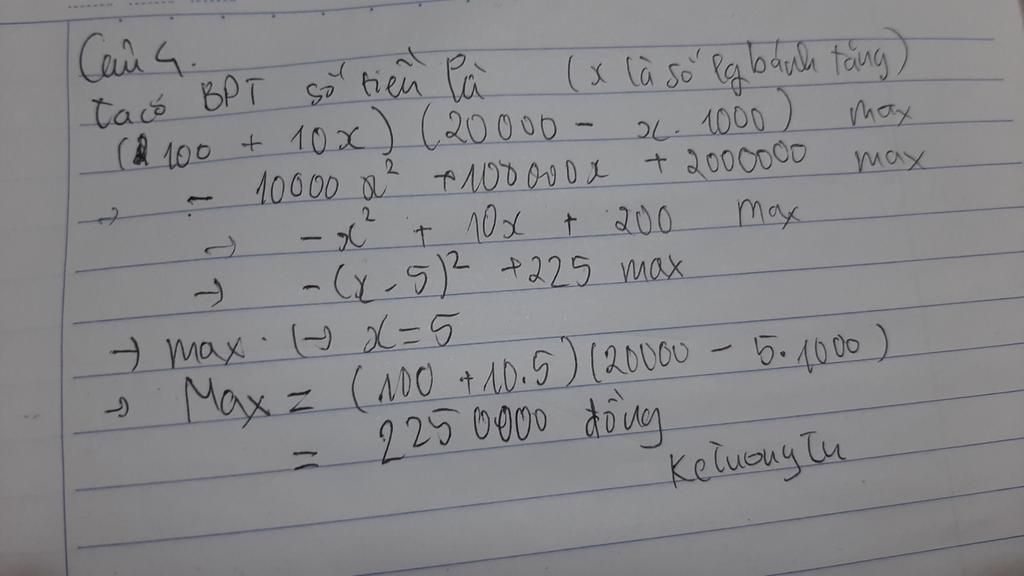 Câu 4.
ta có BPT số tiền là (x là số lg bánh tăng)
(100 + 10x) (20000 - x. 1000) max
→ - 10000 x² + 100000x + 2000000 max
→ - x² + 10x + 200 max
→ - (x - 5)² + 225 max
→ max. (→ x = 5
→ Max = (100 + 10.5) (20000 - 5.1000)
= 2250000 đồng
KeTuongTu